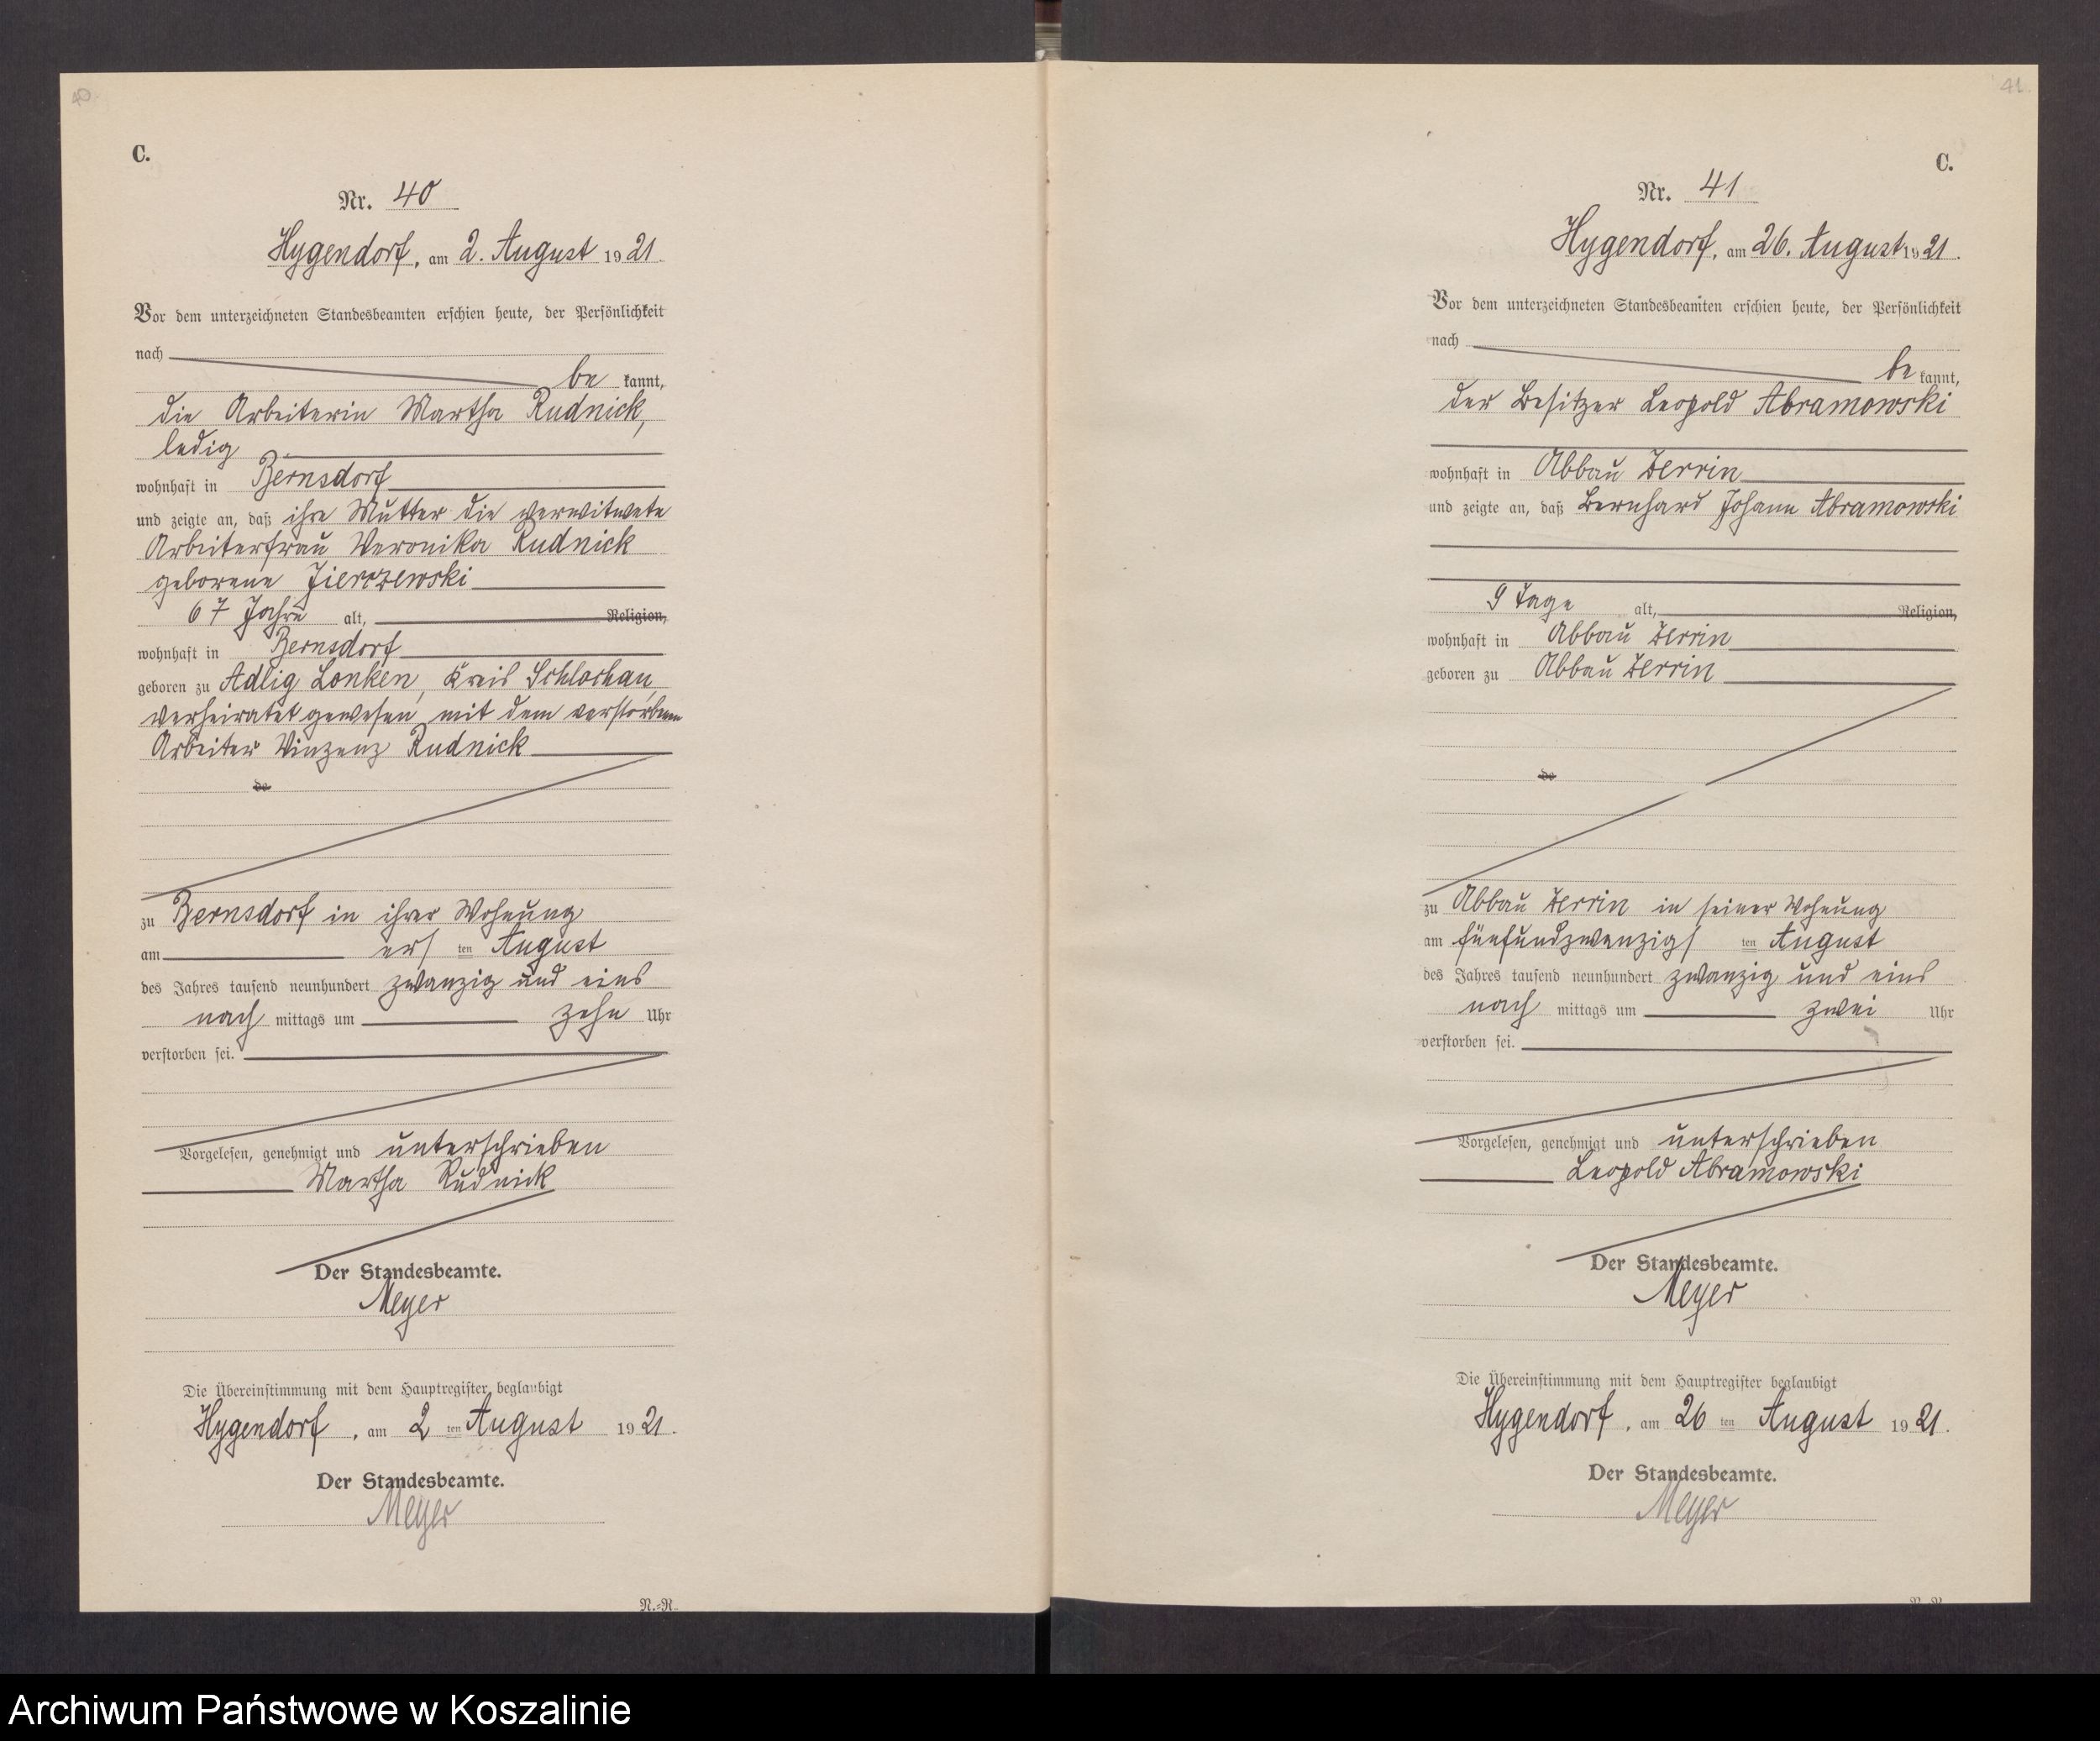 40
C.
Nr. 40
Hygendorf, am 2. August 1921.
Vor dem unterzeichneten Standesbeamten erschien heute, der Persönlichkeit
nach
be kannt,
die Arbeiterin Martha Rudnick,
ledig
wohnhaft in Bernsdorf
und zeigte an, daß ihre Mutter die verwitwete
Arbeiterfrau Veronika Rudnick
geborene Zierczewski
67 Jahre alt, Religion,
wohnhaft in Bernsdorf
geboren zu Adlig Lonken, Kreis Schlochau,
verheiratet gewesen mit dem verstorbenen
Arbeiter Vinzenz Rudnick
de
zu Bernsdorf in ihrer Wohnung
am ers ten August
des Jahres tausend neunhundert zwanzig und eins
nach mittags um zehn Uhr
verstorben sei.
Vorgelesen, genehmigt und unterschrieben
Martha Rudnick
Der Standesbeamte.
Meyer
Die Übereinstimmung mit dem Hauptregister beglaubigt
Hygendorf, am 2 ten August 1921.
Der Standesbeamte.
Meyer
N.-R.
41.
C.
Nr. 41
Hygendorf, am 26. August 1921.
Vor dem unterzeichneten Standesbeamten erschien heute, der Persönlichkeit
nach
be kannt,
der Besitzer Leopold Abramowski
wohnhaft in Abbau Zerrin
und zeigte an, daß Bernhard Johann Abramowski
9 Tage alt, Religion,
wohnhaft in Abbau Zerrin
geboren zu Abbau Zerrin
de
zu Abbau Zerrin in seiner Wohnung
am fünfundzwanzigs ten August
des Jahres tausend neunhundert zwanzig und eins
nach mittags um zwei Uhr
verstorben sei.
Vorgelesen, genehmigt und unterschrieben
Leopold Abramowski
Der Standesbeamte.
Meyer
Die Übereinstimmung mit dem Hauptregister beglaubigt
Hygendorf, am 26 ten August 1921.
Der Standesbeamte.
Meyer
Archiwum Państwowe w Koszalinie